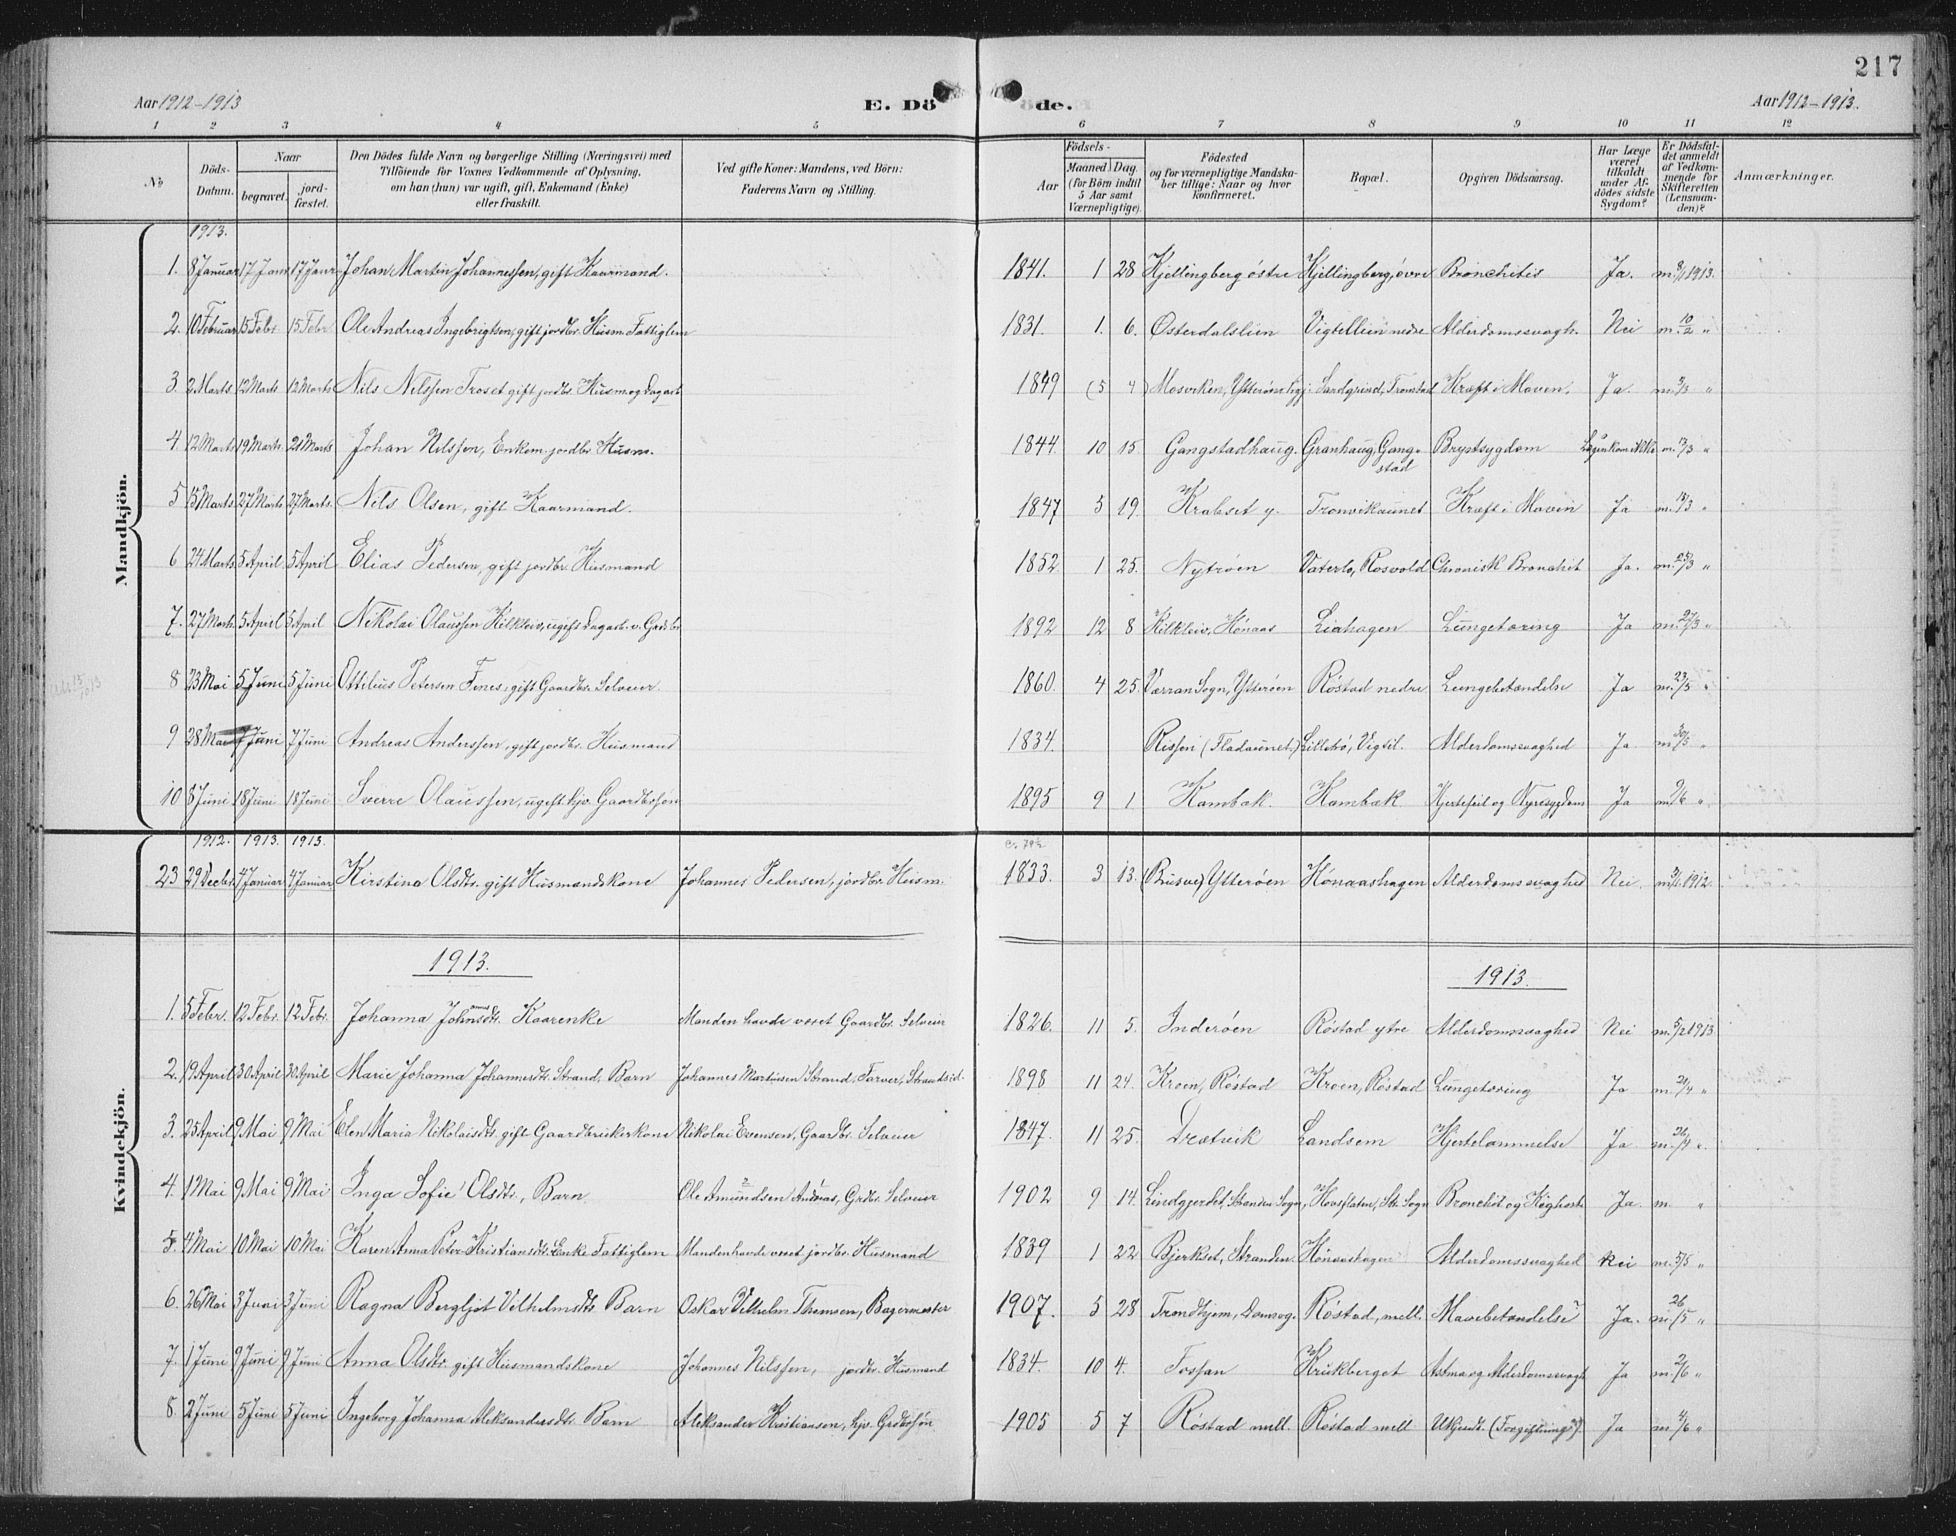 217
Aar 1912-1913 E. Dö de. Aar 1912-1913.
1 2 3 4 5 6 7 8 9 10 11 12
No Döds-Datum. Naar begravet. jord-fæstet. Den Dödes fulde Navn og borgerlige Stilling (Næringsvei) med Tilföiende for Voxnes Vedkommende af Oplysning, om han (hun) var ugift, gift, Enkemand (Enke) eller fraskilt. Ved gifte Koner: Mandens, ved Börn: Faderens Navn og Stilling. Födsels- Aar Maaned. Dag. (for Börn indtil 5 Aar samt Værnepligtige). Födested og for værnepligtige Mandskaber tillige: Naar og hvor konfirmeret. Bopæl. Opgiven Dödsaarsag. Har Læge været tilkaldt under Afdödes sidste Sygdom? Er Dödsfaldet anmeldt af Vedkommende for Skifteretten (Lensmanden)? Anmærkninger.
Mandkjön.
1913.
1. 8 Januar 17 Janr 17 Janr Johan Martin Johannessen, gift Kaarmand. 1841. 1 28 Kjellingberg östre Kjellingberg, övre Bronchitis Ja. m. 8/1 1913.
2. 10 Februar 15 Febr 15 Febr Ole Andreas Ingebrigtsen, gift jordbr. Husm. Fattiglem 1831. 1. 6. Østerdalslien Vigtellien nedre Alderdomssvagh. Nei m. 10/2 "
3. 2 Marts 12 Marts 12 Marts Nils Nilssen Troset gift jordbr. Husm. og Dagarb 1849 (5 4) Mosviken, Ytterøns Sogj: Sandgrind, Tronstad Kræft i Maven. Ja. m. 3/3 "
4 12 Marts 19 Marts 21 Marts Johan Nilssen, Enkem. jordbr. Husm. 1844. 10 15. Gangstadhaug. Granhaug, Gangstad Brystsygdom Lægen kom ikke m. 13/3 "
5 15 Marts 27 Marts 27 Marts. Nils Olsen, gift Kaarmand. 1847 5 19. Krabset y. Tronvikaunet Kræft i Maven Ja m. 18/3 "
6 24 Marts 5 April 5 April Elias Pedersen, gift jordbr. Husmand 1852 1 25. Nytrøen Vaterlo, Rosvold Chronisk Bronchit Ja. m. 25/3 "
7. 27 Marts 5 April 5 April Nikolai Olaussen Kilkleiv, ugift Dagarb. v. Gadebr 1892 12 8 Kilkleiv, Hønaas Liahagen Lungetæring Ja m. 27/3 "
8 23 Mai 5 Juni 5 Juni Ottilius Petersen Fines, gift Gaardbr. Selveier. 1860. 4 25. Værran Sogn, Ytterøen Röstad nedre Lungebetændelse Ja m. 23/5 "
9 28 Mai 7 Juni 7 Juni Andreas Anderssen, gift jordbr. Husmand 1834. Rissen (Fladaunet.) Lillebö, Vigtil. Alderdomssvaghed Ja m. 30/5 "
10 8 Juni 18 Juni 18 Juni Sverre Olaussen, ugift hjv. Gaardbrsøn 1895 9 1 Kambak. Kambak Hjertefeil og Nyresygdom Ja m. 9/6 "
Kvindekjön.
1912. 1913. 1913.
23 29 Decbr. 4 Januar 4 Januar Kirstina Olsdtr. gift Husmandskone Johannes Pedersen, jordbr. Husm. 1833. 3 13. (Busve) Ytterøen Hönaashagen Alderdomssvaghed Nei. m. 31/12 1912.
1913. 1913.
1. 5 Febr. 12 Febr. 12 Febr. Johanna Johannesdtr. Kaarenke Manden havde været Gaardbr. Selveier 1826. 11 5. Inderøen Röstad ytre Alderdomssvaghed Nei m. 5/2 1913
2. 19 April 30 April 30 April Marie Johanna Johannesdtr. Strand, Barn Johannes Martinsen Strand, Farver, Strandsid. 1898 11 24. Kroen, Röstad Kroen, Röstad Lungetæring Ja m. 21/4 "
3. 25 April 9 Mai 9 Mai Elen Maria Nikolaisdtr. gift Gaardbrukerkone Nikolai Evensen, Gaardbr. Selveier 1847. 11 25. Drætvik Landsem Hjertelammelse Ja m. 26/4 "
4. 1 Mai 9 Mai 9 Mai Inga Sofie Olsdtr., Barn Ole Amundsen Andenas, Grdbr. Selveier 1902 9 14. Lindgjerdet, Stranden Sogn, Hovsflaten, Str. Sogn Bronchit og Kighoste Ja. m. "
5. 4 Mai 10 Mai 10 Mai Karen Anna Peter Kristiansdtr. Enke Fattiglem Manden havde været jordbr. Husmand 1839 1 22 Bjerkset, Stranden Hönaashagen Alderdomssvaghed Nei m. 5/5 "
6. 26 Mai 3 Juni 3 Juni Ragna Bergljot Vilhelmsdtr. Barn Oskar Vilhelm Thomsen, Bagermester 1907. 5 28 Trondhjem, Domsog. Röstad, mell. Mavebetændelse? Ja. m. 26/5 "
7. 1 Juni 9 Juni 9 Juni Anna Olsdtr. gift Husmandskone Johannes Nilssen, jordbr. Husmand 1834. 10 4. Fossan Krukberget Astma og Alderdomssvagh Ja m. 2/6 "
8. 2 Juni 5 Juni 5 Juni Ingeborg Johanna Aleksandersdtr. Barn Aleksander Kristiansen, hjv. Grdbrsøn 1905 5 7 Röstad mell. Röstad mell Ukjendt. (Forgiftning?). Ja m. 4/6 "